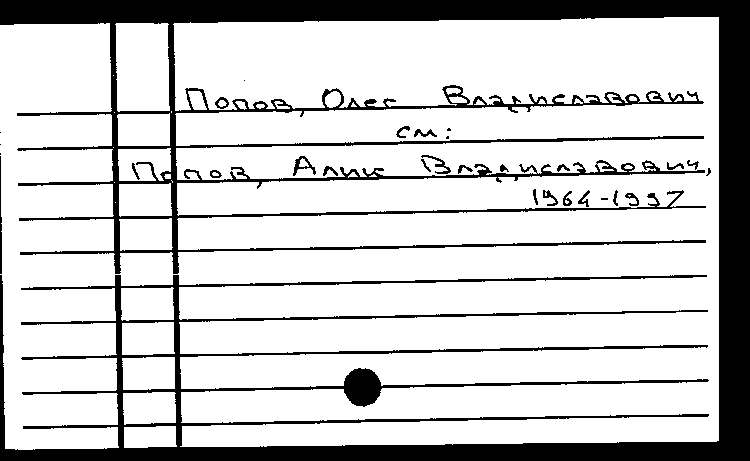 Попов, Олег Владиславович
см:
Попов, Алик Владиславович,
1964-1997